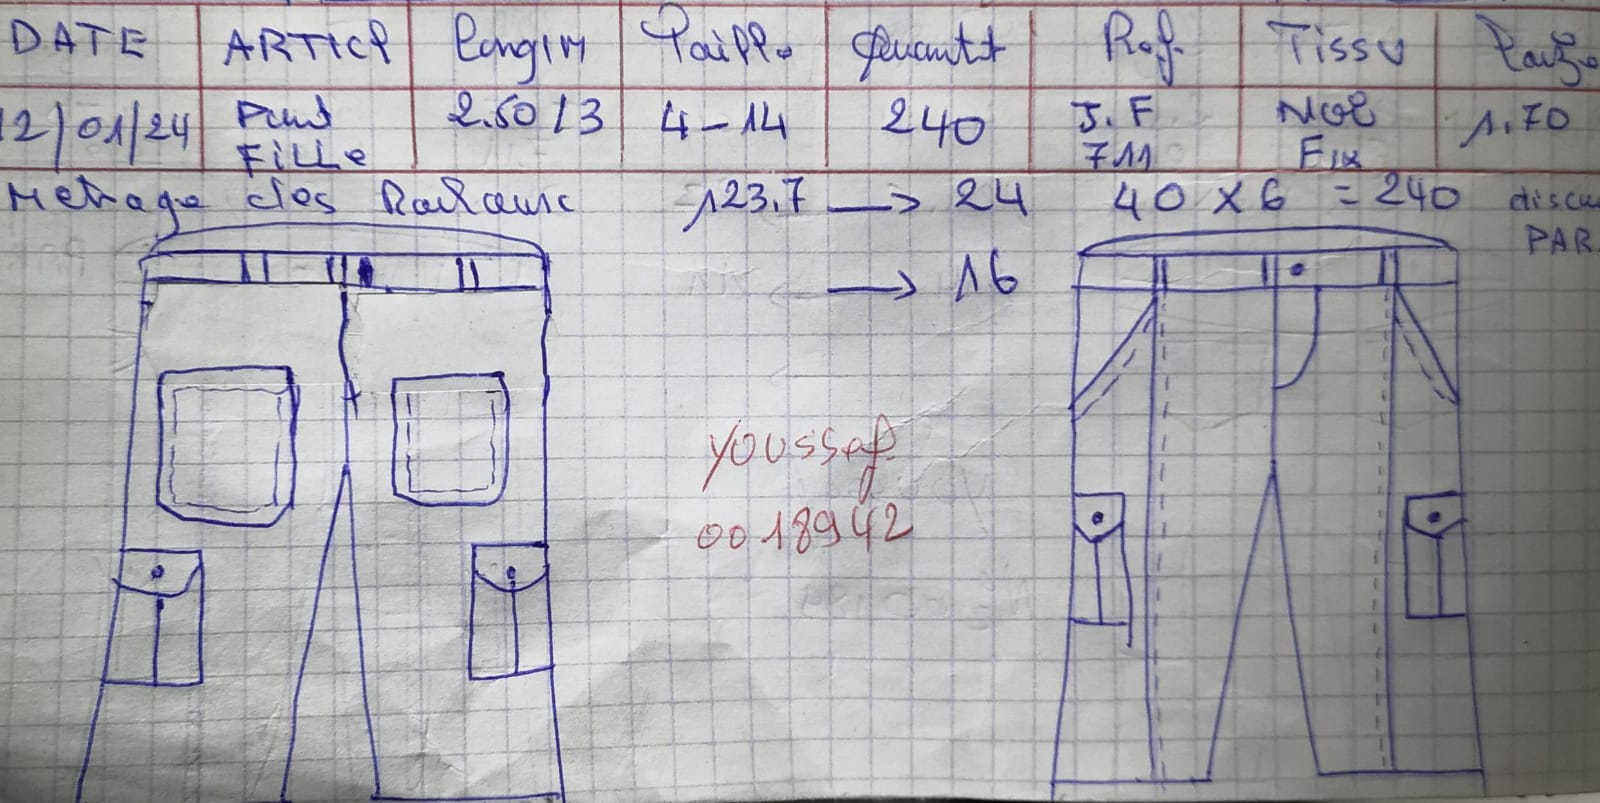 DATE ARTICL Longur Taille Quantt Ref. Tissu
12/01/24 Pant Fille 2.50/3 4-14 240 J.F 711 Fix 1.70
Metrage des 123.7 → 24 40 x 6 = 240 discu
PAR
→ 16
youssef
0018942